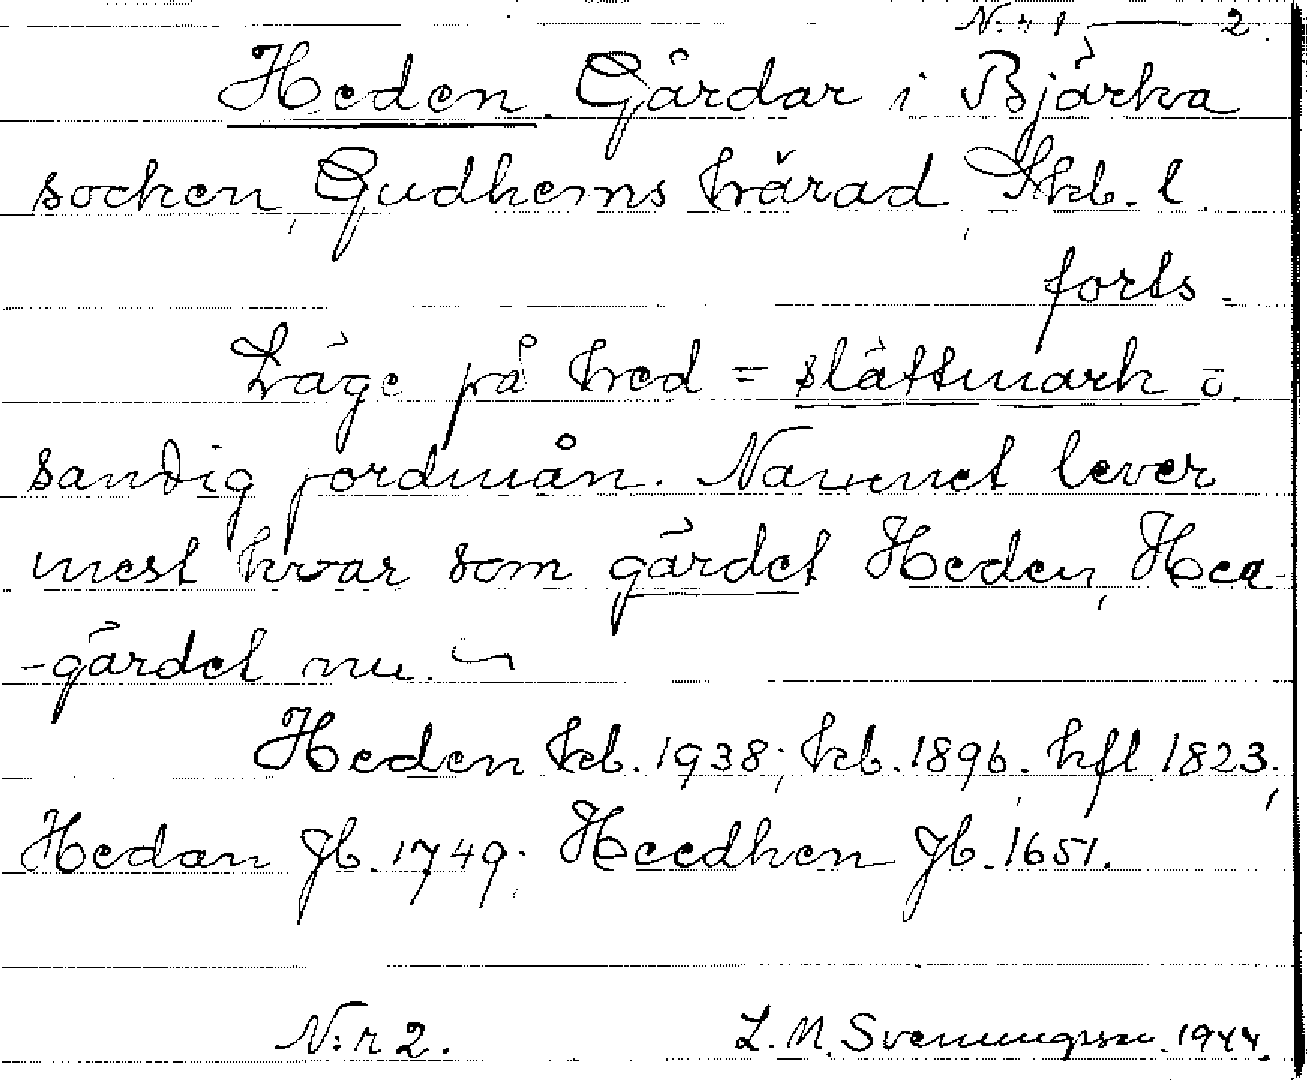 N:r 1 — 2.
Heden Gårdar i Bjärka
socken, Gudhems härad, Skb. l.
forts.
Läge på hed = slättmark o.
sandig jordmån. Namnet lever
mest kvar som gärdet Heden, Hea-
-gärdet nu.
Heden kb. 1938; kb. 1896, hfl 1823;
Hedan Jb. 1749; Heedhen Jb. 1651.
N:r 2. L. M. Svenungsson. 1944.